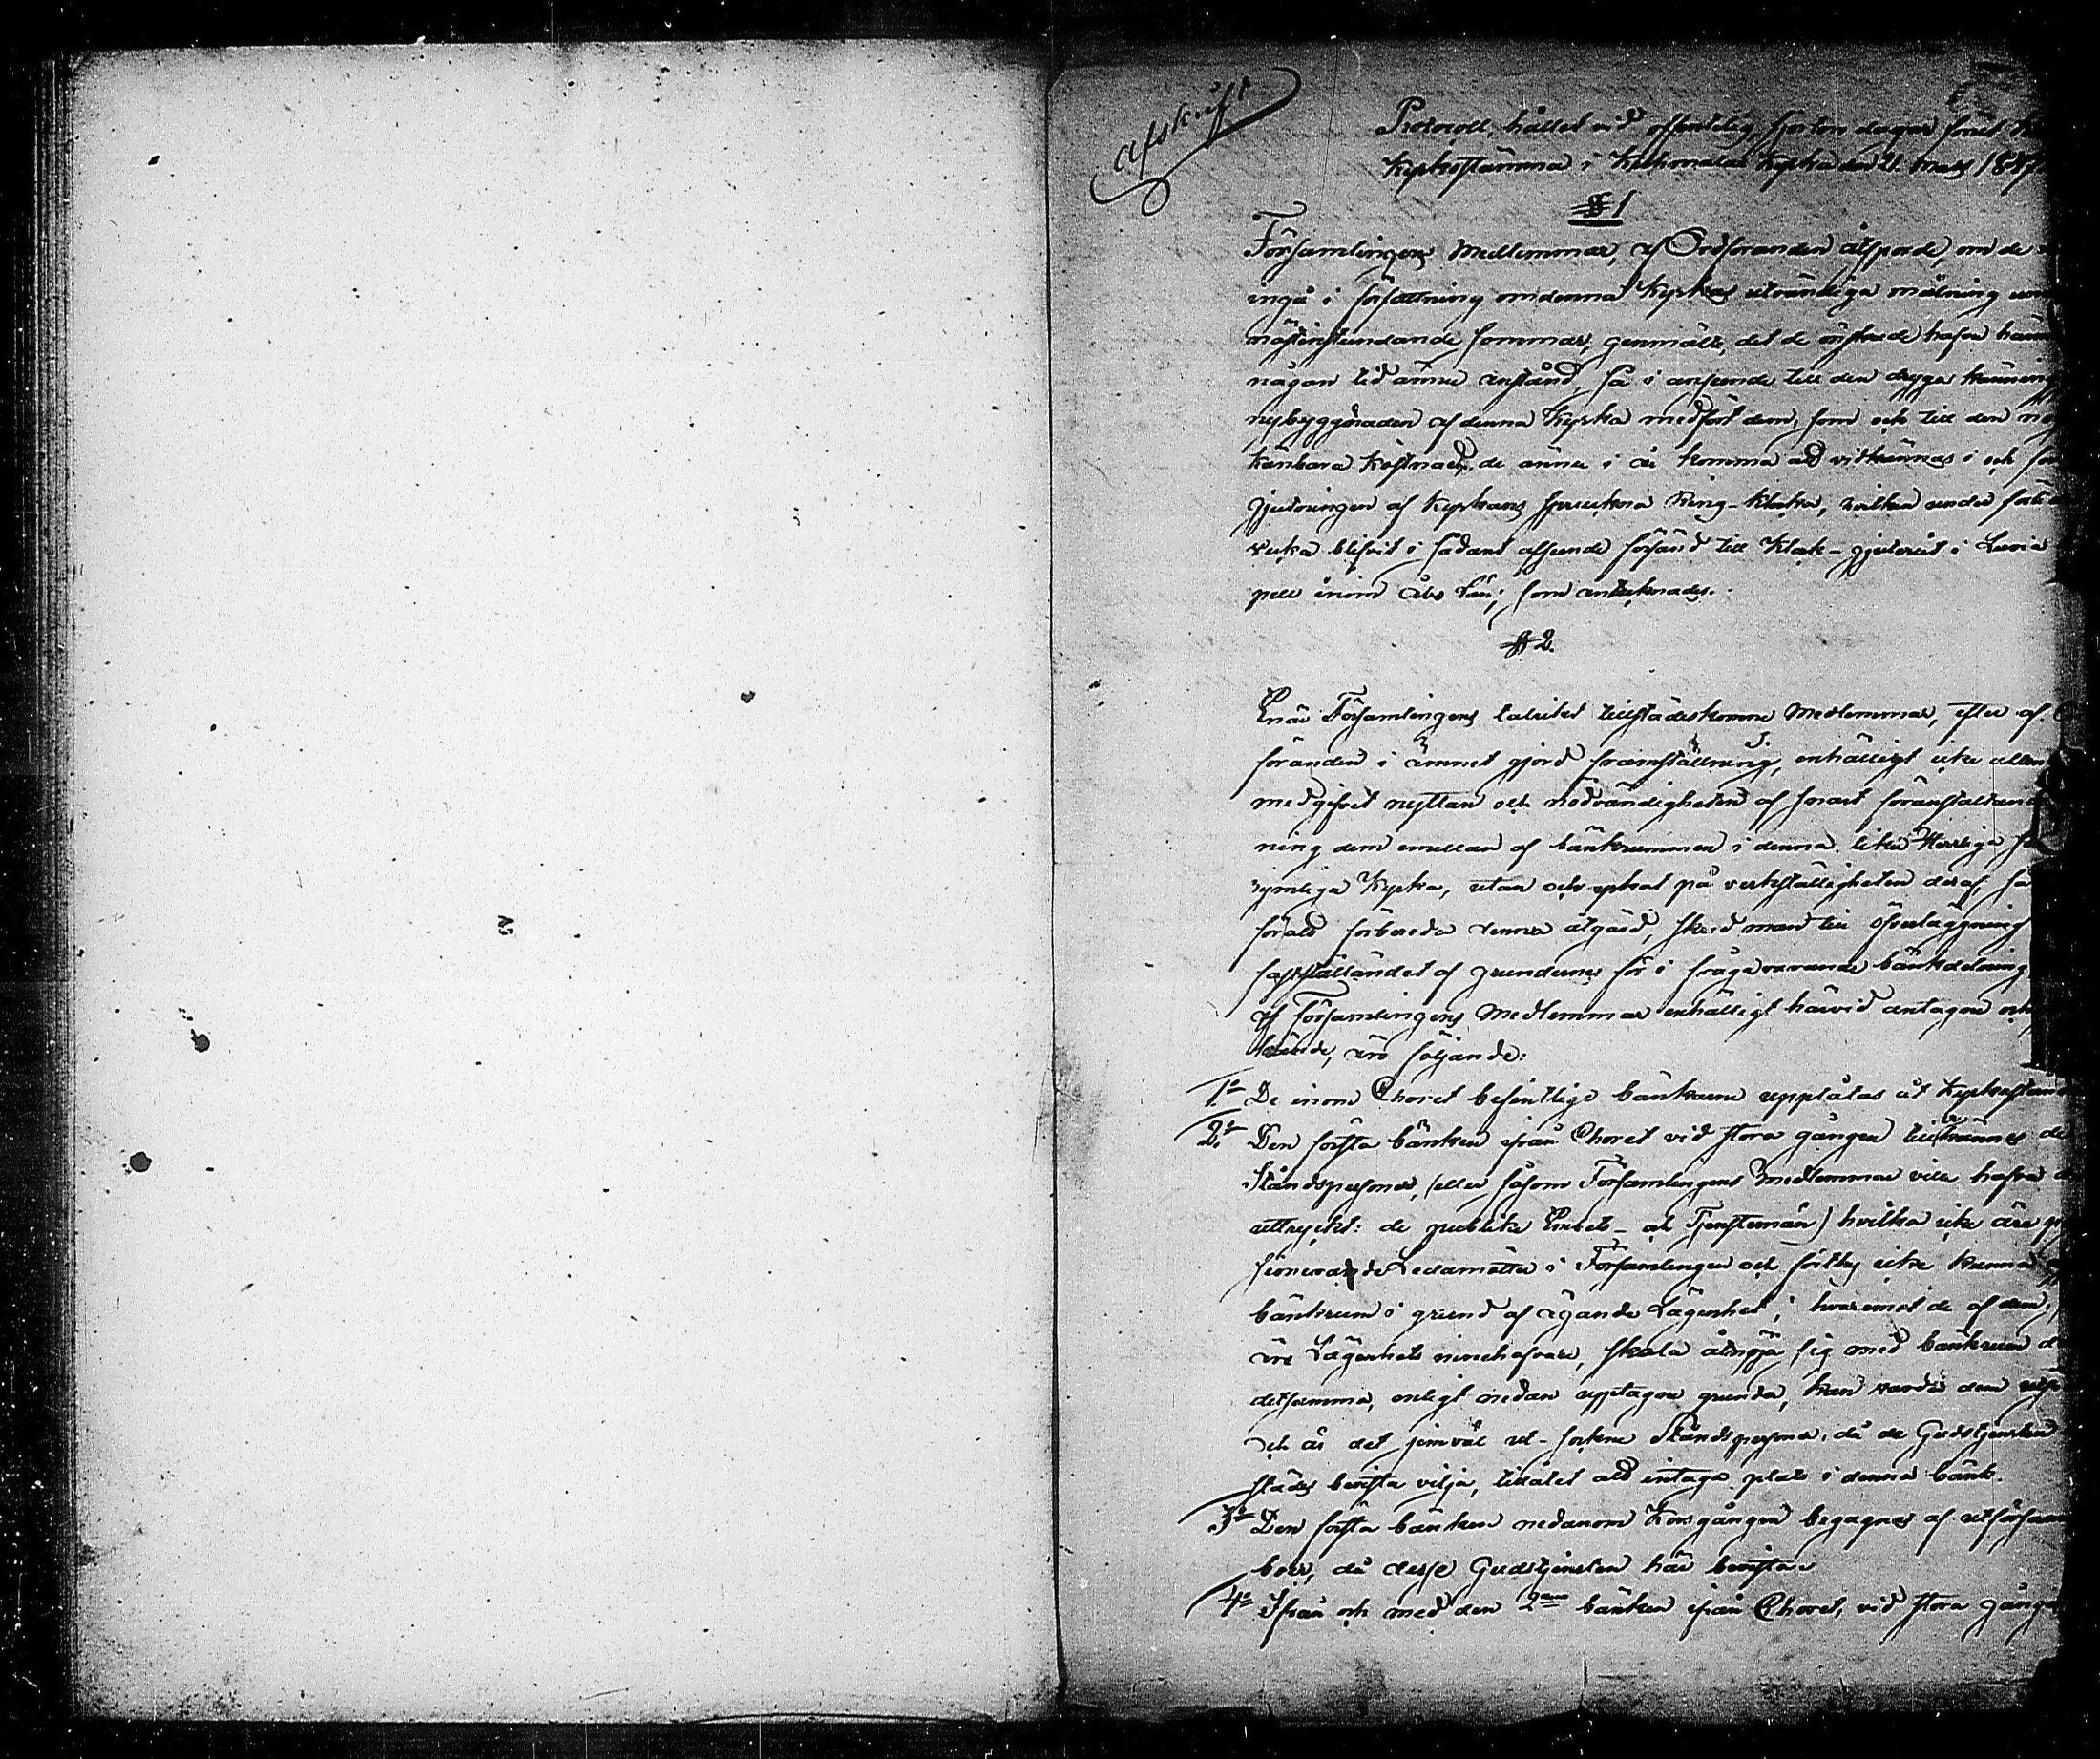 Afskrift
Protocoll, hållet vid offentelig, fjorton dagar förut
Kyrkostämma i Kyrka den 21 Mars 18
§ 1
Församlingens Medlemmar, af Ordföranden åtsporde, om de
ingå i författning om denna Kyrkas utvändiga målning
nästinstundande sommar, genmälte, det de önskade hafva
någon tid ännu anstånd, så i anseende till den dryga känning
nybyggnaden af denna Kyrka medfört dem, som ock till den
känbara kostnad, de ännu i år komma att vidkännas i och
gjutningen af Kyrkans spruckna Ring-klocka, hvilken under
vecka blifvit i sådant afseende försänd till Klock-gjuteriet i Luvia
pell inom Åbo Län; som antecknades.
§ 2.
Enär Församlingens talrikt tillstädeskomne Medlemmar, efter af
föranden i ämnet gjord framställning, enhälligt icke allen
medgifvit nyttan och nödvändigheten af snart föranstaltand
ning dem emellan af bänkrummen i denna, lika Herrliga
rymliga Kyrka, utan ock yrkat på verkställigheten deraf, så
förbereda denna åtgärd, skred man till öfverläggning
fastställandet af grunderne för i fråga varande bänkdelning
af Församlingens Medlemmar enhälligt härvid antagne och
kände, äro följande:
1o De inom Choret befintlige bänkarne upplåtas åt Kyrkostånd
2o Den första bänken ifrån Choret vid stora gången tillkännes de
Ståndspersoner, (eller såsom Församlingens Medlemmar ville hafva
uttryckt: de publike Embets- och Tjenstemän) hvilka icke äro
Ledamöter i Församlingen och förthy icke kunna
bänkrum i grund af ägande Lägenhet; hvaremot de af dem,
äro Lägenhets innehafvare, skola åtnöja sig med bänkrum
detsamma, enligt nedan upptagne grunder, kan varda dem
och är det jemväl ut-sockne Ståndspersoner, då de Gudstjensten
städes bevista vilja, tillåtet att intaga plats i denna bänk.
3o Den första bänken nedanom Korsgången begagnas af utförsam
boer, då desse Gudstjensten här bevista
4o Ifrån och med den 2dra bänken ifrån Choret, vid stora gången